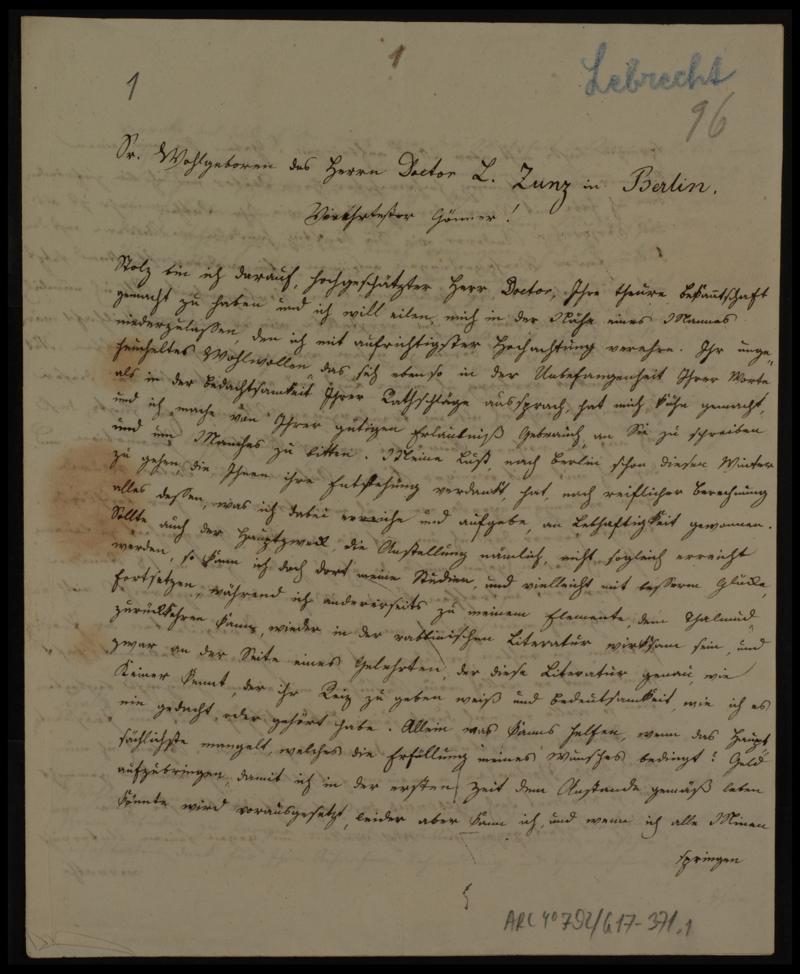 1
1
Lebrecht
96
Sr. Wohlgeboren des Herrn Doctor L. Zunz in Berlin.
Verehrtester Gönner!
Stolz bin ich darauf, hochgeschätzter Herr Doctor, Ihre theure Bekanntschaft
gemacht zu haben und ich will eilen, mich in der Nähe eines Mannes
niederzulassen, den ich mit aufrichtigster Hochachtung verehre. Ihr unge-
heucheltes Wohlwollen, das sich ebenso in der Unbefangenheit Ihrer Worte
als in der Bedachtsamkeit Ihrer Rathschläge aussprach, hat mich kühn gemacht,
und ich mache von Ihrer gütigen Erlaubniß Gebrauch, an Sie zu schreiben
und um Manches zu bitten. Meine Lust, nach Berlin schon diesen Winter
zu gehen, die Ihnen ihre Entstehung verdankt, hat, nach reiflicher Berechnung
alles dessen, was ich dabei erreiche und aufgebe, an Lebhaftigkeit gewonnen.
Sollte auch der Hauptzweck, die Anstellung nämlich, nicht sogleich erreicht
werden, so kann ich doch dort meine Studien, und vielleicht mit besserm Glücke,
fortsetzen, während ich andererseits zu meinem Elemente, dem Thalmud,
zurückkehren kann, wieder in der rabbinischen Literatur wirksam sein, und
zwar an der Seite eines Gelehrten, der diese Literatur genau, wie
Keiner kennt, der ihr Reiz zu geben weiß und Bedeutsamkeit, wie ich es
nie gedacht, oder gehört habe. Allein was kanns helfen, wenn das Haupt
sächlichste mangelt, welches die Erfüllung meines Wunsches bedingt? Geld
aufzubringen, damit ich in der ersten Zeit dem Anstande gemäß leben
könnte wird vorausgesetzt, leider aber kann ich, und wenn ich alle Minen
springen
ARC 4° 792/G17-371.1